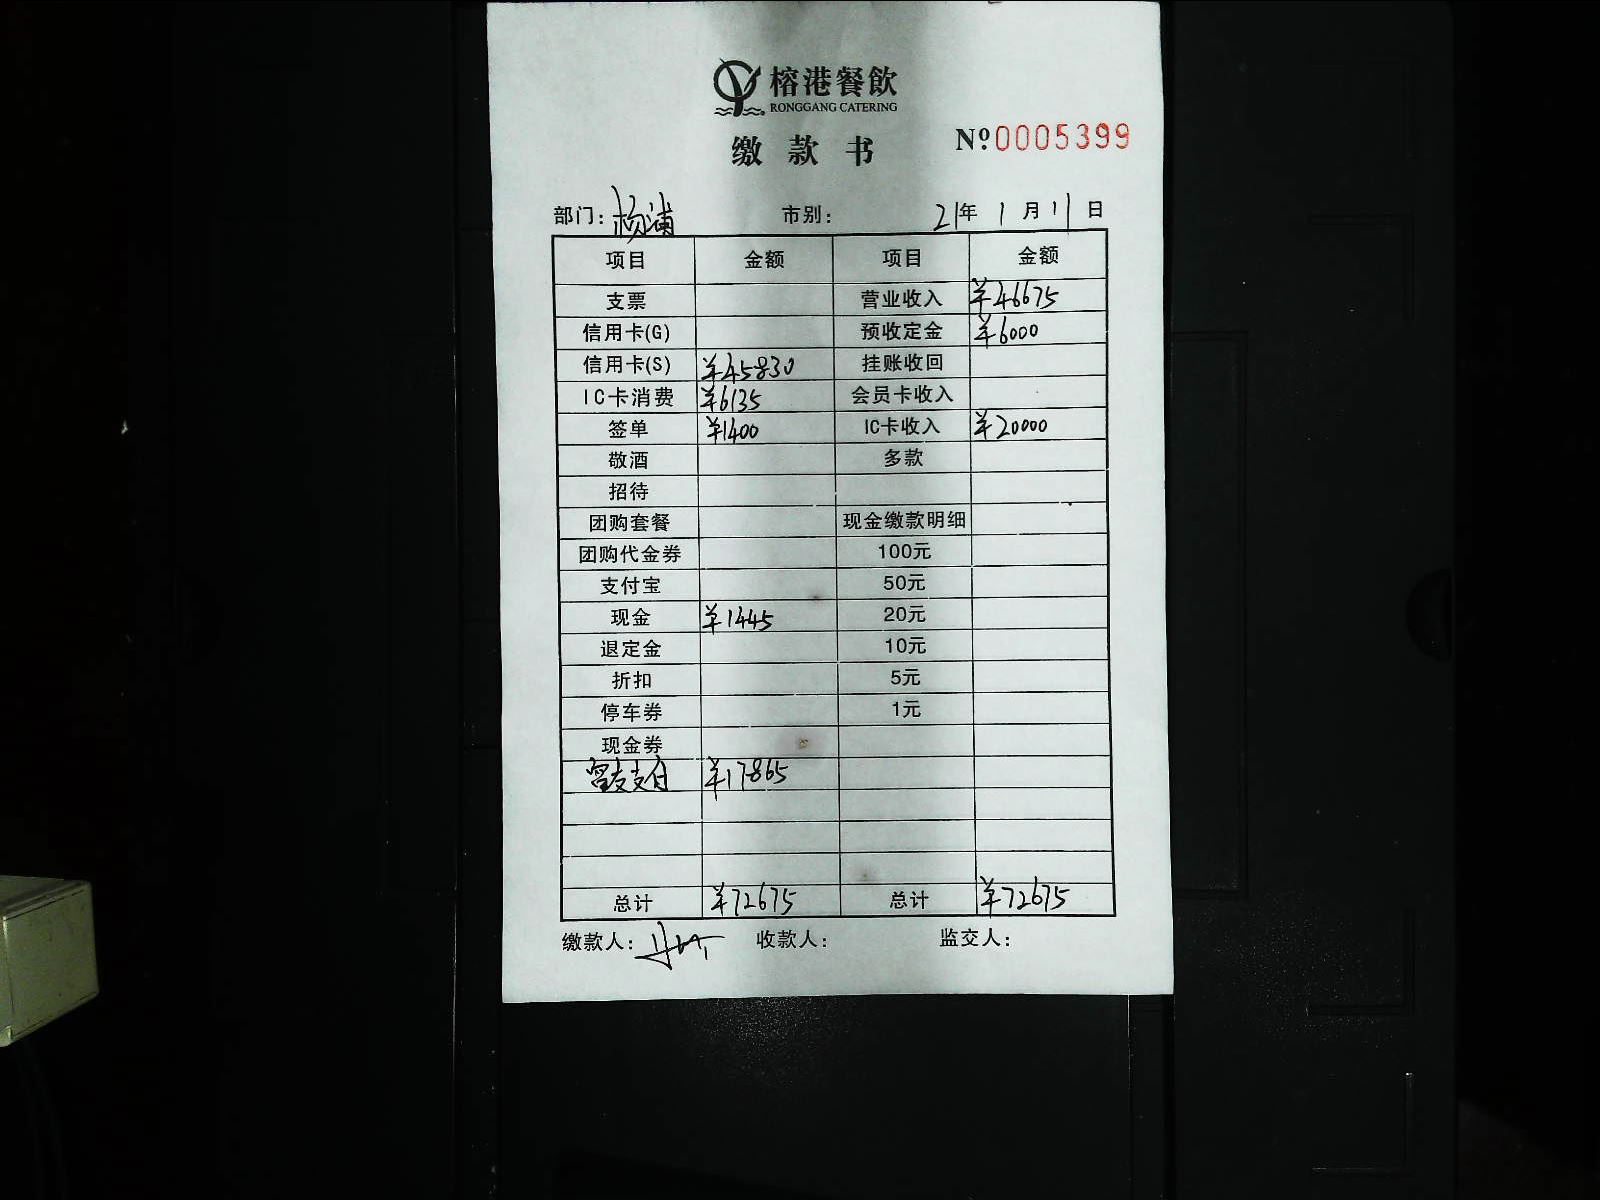 榕港餐飲
RONGGANG CATERING
缴款书
Nº0005399
部门: 杨浦 市别: 21年 1月 11日
项目 金额 项目 金额
支票 营业收入 ¥46675
信用卡(G) 预收定金 ¥6000
信用卡(S) ¥45830 挂账收回
IC卡消费 ¥6135 会员卡收入
签单 ¥1400 IC卡收入 ¥20000
敬酒 多款
招待
团购套餐 现金缴款明细
团购代金券 100元
支付宝 50元
现金 ¥1445 20元
退定金 10元
折扣 5元
停车券 1元
现金券
支付 ¥17865
总计 ¥72675 总计 ¥72675
缴款人: 收款人: 监交人: